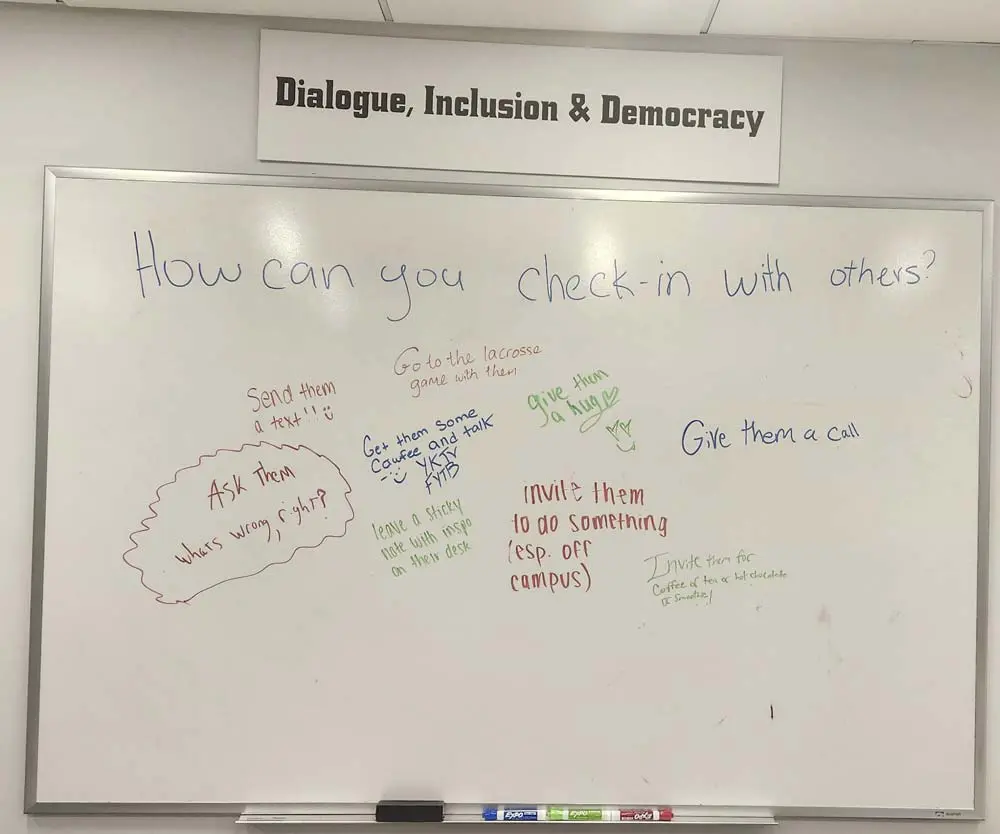 Dialogue, Inclusion & Democracy
How can you check-in with others?
Go to the lacrosse
game with them
Send them
a text!!
give them
a hug
Get them some
Cawfee and talk
YKTV
FYTB
Give them a call
Ask them
whats wrong, right?
leave a sticky
note with inspo
on their desk
invite them
to do something
(esp. off
campus)
Invite them for
Coffee or tea or hot chocolate
or smoothie!
EXPO
EXPO
EXPO